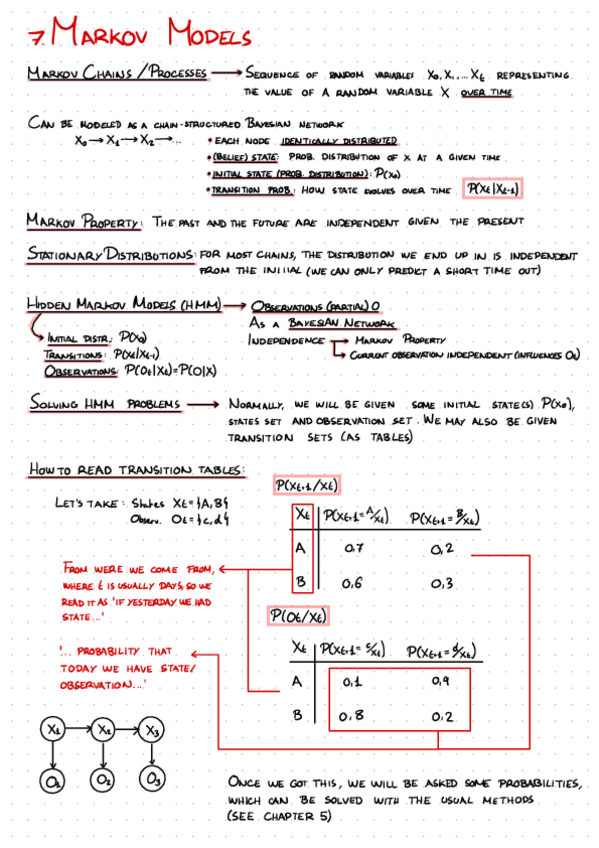 7. MARKOV MODELS
MARKOV CHAINS/PROCESSES → SEQUENCE OF RANDOM VARIABLES X₀,X₁,...Xₜ REPRESENTING
THE VALUE OF A RANDOM VARIABLE X OVER TIME
CAN BE MODELED AS A CHAIN-STRUCTURED BAYESIAN NETWORK
X₀→X₁→X₂→...
• EACH NODE IDENTICALLY DISTRIBUTED
• (BELIEF) STATE: PROB. DISTRIBUTION OF X AT A GIVEN TIME
• INITIAL STATE (PROB. DISTRIBUTION): P(X₀)
• TRANSITION PROB.: HOW STATE EVOLVES OVER TIME P(Xₜ|Xₜ₋₁)
MARKOV PROPERTY: THE PAST AND THE FUTURE ARE INDEPENDENT GIVEN THE PRESENT
STATIONARY DISTRIBUTIONS: FOR MOST CHAINS, THE DISTRIBUTION WE END UP IN IS INDEPENDENT
FROM THE INITIAL (WE CAN ONLY PREDICT A SHORT TIME OUT)
HIDDEN MARKOV MODELS (HMM) → OBSERVATIONS (PARTIAL) O
AS A BAYESIAN NETWORK
INDEPENDENCE → MARKOV PROPERTY
→ CURRENT OBSERVATION INDEPENDENT (INFLUENCES Oₜ)
INITIAL DISTR.: P(X₀)
TRANSITIONS: P(Xₜ|Xₜ₋₁)
OBSERVATIONS: P(Oₜ|Xₜ)=P(O|X)
SOLVING HMM PROBLEMS → NORMALLY, WE WILL BE GIVEN SOME INITIAL STATE(S) P(X₀),
STATES SET AND OBSERVATION SET. WE MAY ALSO BE GIVEN
TRANSITION SETS (AS TABLES)
HOW TO READ TRANSITION TABLES:
P(Xₜ₊₁/Xₜ)
LET'S TAKE: States Xₜ={A,B}
Observ. Oₜ={c,d}
Xₜ P(Xₜ₊₁=A/Xₜ) P(Xₜ₊₁=B/Xₜ)
A 0,7 0,2
B 0,6 0,3
FROM WERE WE COME FROM,
WHERE t IS USUALLY DAYS, SO WE
READ IT AS 'IF YESTERDAY WE HAD
STATE...'
P(Oₜ/Xₜ)
Xₜ P(Xₜ₊₁=c/Xₜ) P(Xₜ₊₁=d/Xₜ)
A 0,1 0,9
B 0,8 0,2
'... PROBABILITY THAT
TODAY WE HAVE STATE/
OBSERVATION...'
X₁ X₂ X₃
O₁ O₂ O₃
ONCE WE GOT THIS, WE WILL BE ASKED SOME PROBABILITIES,
WHICH CAN BE SOLVED WITH THE USUAL METHODS
(SEE CHAPTER 5)